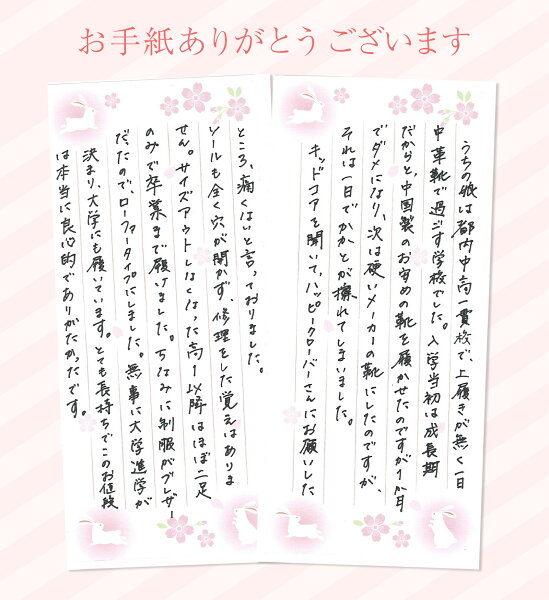 お手紙ありがとうございます
うちの娘は都内中高一貫校で、上履きが無く一日
中革靴で過ごす学校でした。入学当初は成長期
だからと中国製のお安めの靴を履かせたのですが1か月
でダメになり、次は硬いメーカーの靴にしたのですが、
それは一日でかかとが擦れてしまいました。
キッドコアを聞いて、ハッピークローバーさんにお願いした
ところ、痛くないと言っておりました。
ソールも全く穴が開かず、修理をした覚えはありま
せん。サイズアウトしなくなった高1以降はほぼ二足
のみで卒業まで履けました。ちなみに制服がブレザー
だったので、ローファータイプにしました。無事に大学進学が
決まり、大学にも履いています。とても長持ちでこのお値段
は本当に良心的でありがたかったです。